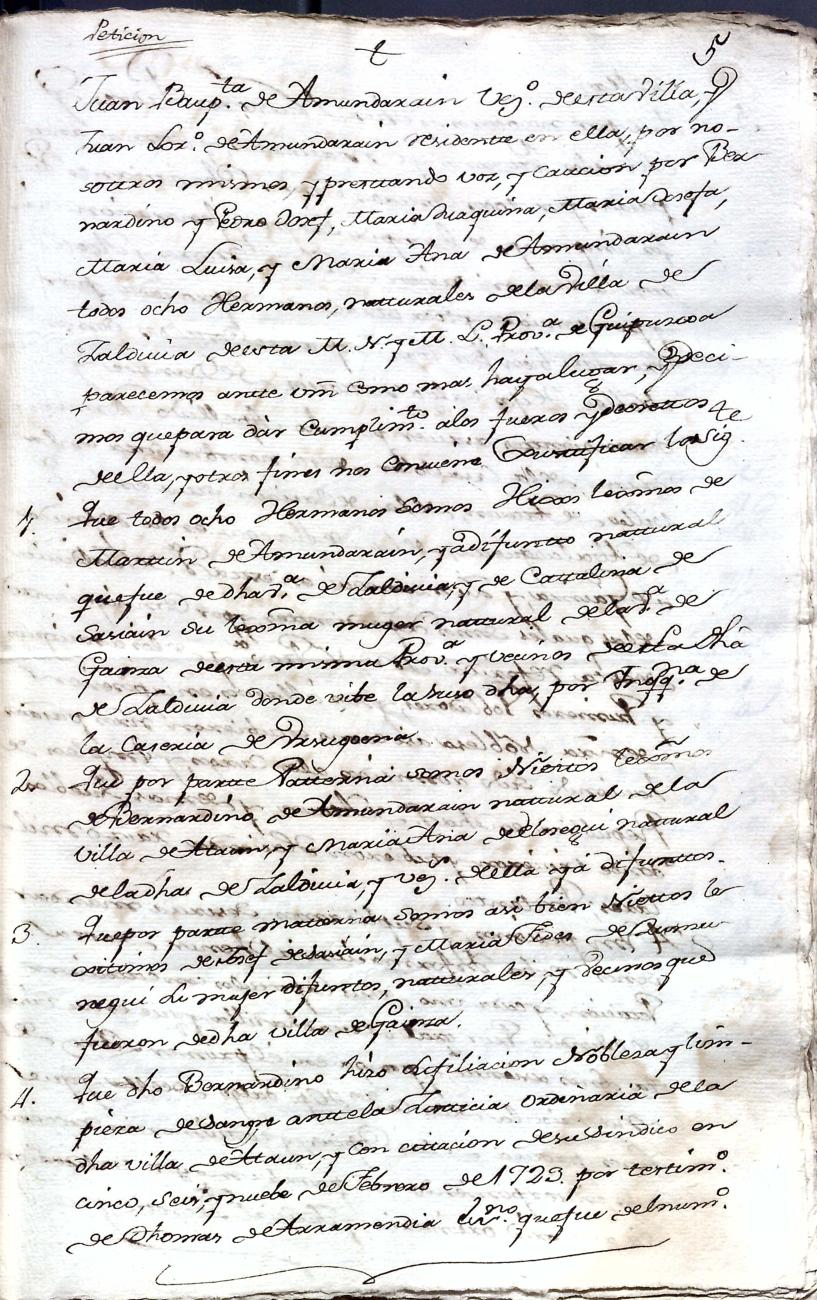 Peticion
5
Juan Baup.ta de Amundarain Vez.o de esta Villa, y
Juan Lor.o de Amundarain residente en ella, por no-
sottros mismos, y presttando voz, y Caucion por Ber
nardino y Pedro Josef, Maria Juaquina, Maria Josefa,
Maria Luisa, y Maria Ana de Amundarain
todos ocho Hermanos, natturales de la Villa de
Zaldivia de esta M. N. y M. L. Prov.a de Guipuzcoa
parecemos antte vm como mas haya lugar, y Deci-
mos que para dar Cumplim.to a los fueros y Decrettos
de ella, y otros fines nos Conviene Justificar lo Sig.te
1. Que todos ocho Hermanos Somos Hixos lexmos de
Martin de Amundarain, ya difuntto nattural
que fue de dha V.a de Zaldivia, y de Cattalina de
Sasiain su lexma muger natural de la V.a de
Gainza de esta misma Prov.a y vecinos de esta dha
de Zaldivia donde vibe la suso dha, por Inq.na de
la Caseria de
2. Que por partte Patterna somos Niettos lexmos
de Bernardino de Amundarain nattural de la
Villa de Ataun, y Maria Ana de Eloregui natural
de la dha de Zaldivia, y vez.s de ella ya difunttos.
3. Que por partte matterna Somos asi bien Niettos le
xitimos de Josef de Sasiain, y Maria Fides de
negui su muger difuntos, natturales, y Vecinos que
fueron de dha villa de Gainza.
4. Que dho Bernardino hizo su filiacion Nobleza y lim-
pieza de Sangre antte la Justicia Ordinaria de la
dha villa de Ataun, y Con cittacion de su Sindico en
cinco, Seis, y nuebe de Febrero de 1723 por testim.o
de Thomas de Arramendia Ess.no que fue del num.o